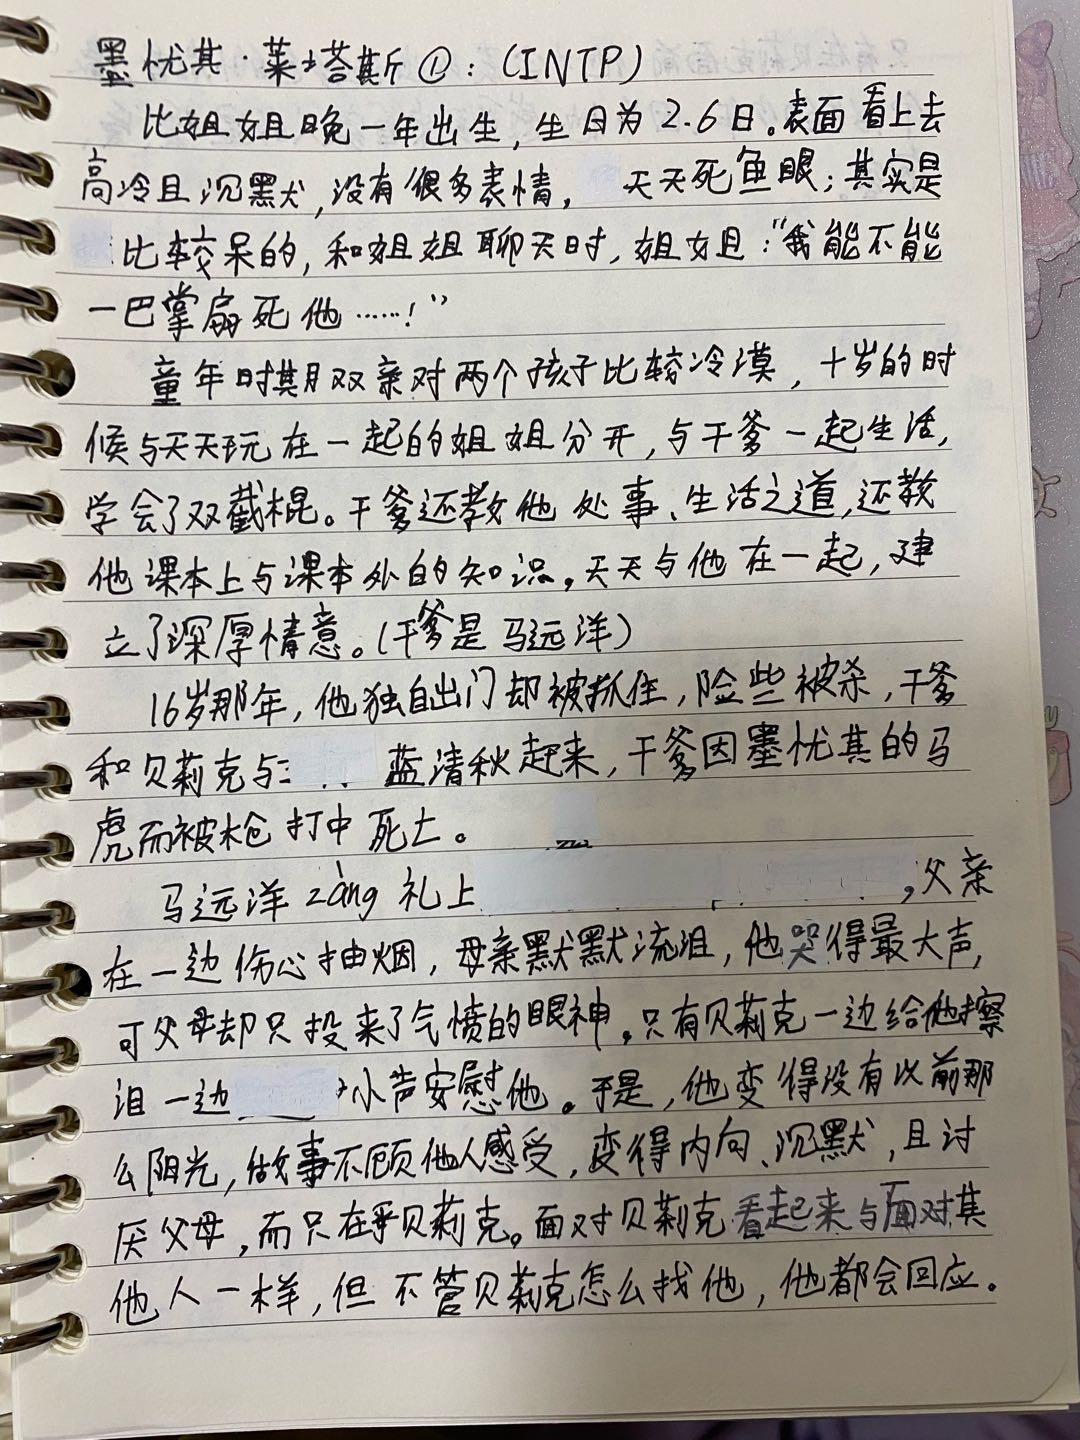 墨忧其·莱塔斯①:(INTP)
比姐姐晚一年出生,生日为2.6日。表面看上去
高冷且沉默,没有很多表情,天天死鱼眼;其实是
比较呆的,和姐姐聊天时,姐姐:“我能不能
一巴掌扇死他……!”
童年时期双亲对两个孩子比较冷漠,十岁的时
候与天天玩在一起的姐姐分开,与干爹一起生活,
学会了双截棍。干爹还教他处事、生活之道,还教
他课本上与课本外的知识。天天与他在一起,建
立了深厚情意。(干爹是马远洋)
16岁那年,他独自出门却被抓住,险些被杀,干爹
和贝莉克与蓝清秋起来,干爹因墨忧其的马
虎而被枪打中死亡。
马远洋zàng礼上,父亲
在一边伤心抽烟,母亲默默流泪,他哭得最大声,
可父母却只投来了气愤的眼神。只有贝莉克一边给他擦
泪一边小声安慰他。于是,他变得没有以前那
么阳光,做事不顾他人感受,变得内向、沉默,且讨
厌父母,而只在乎贝莉克。面对贝莉克看起来与面对其
他人一样,但不管贝莉克怎么找他,他都会回应。